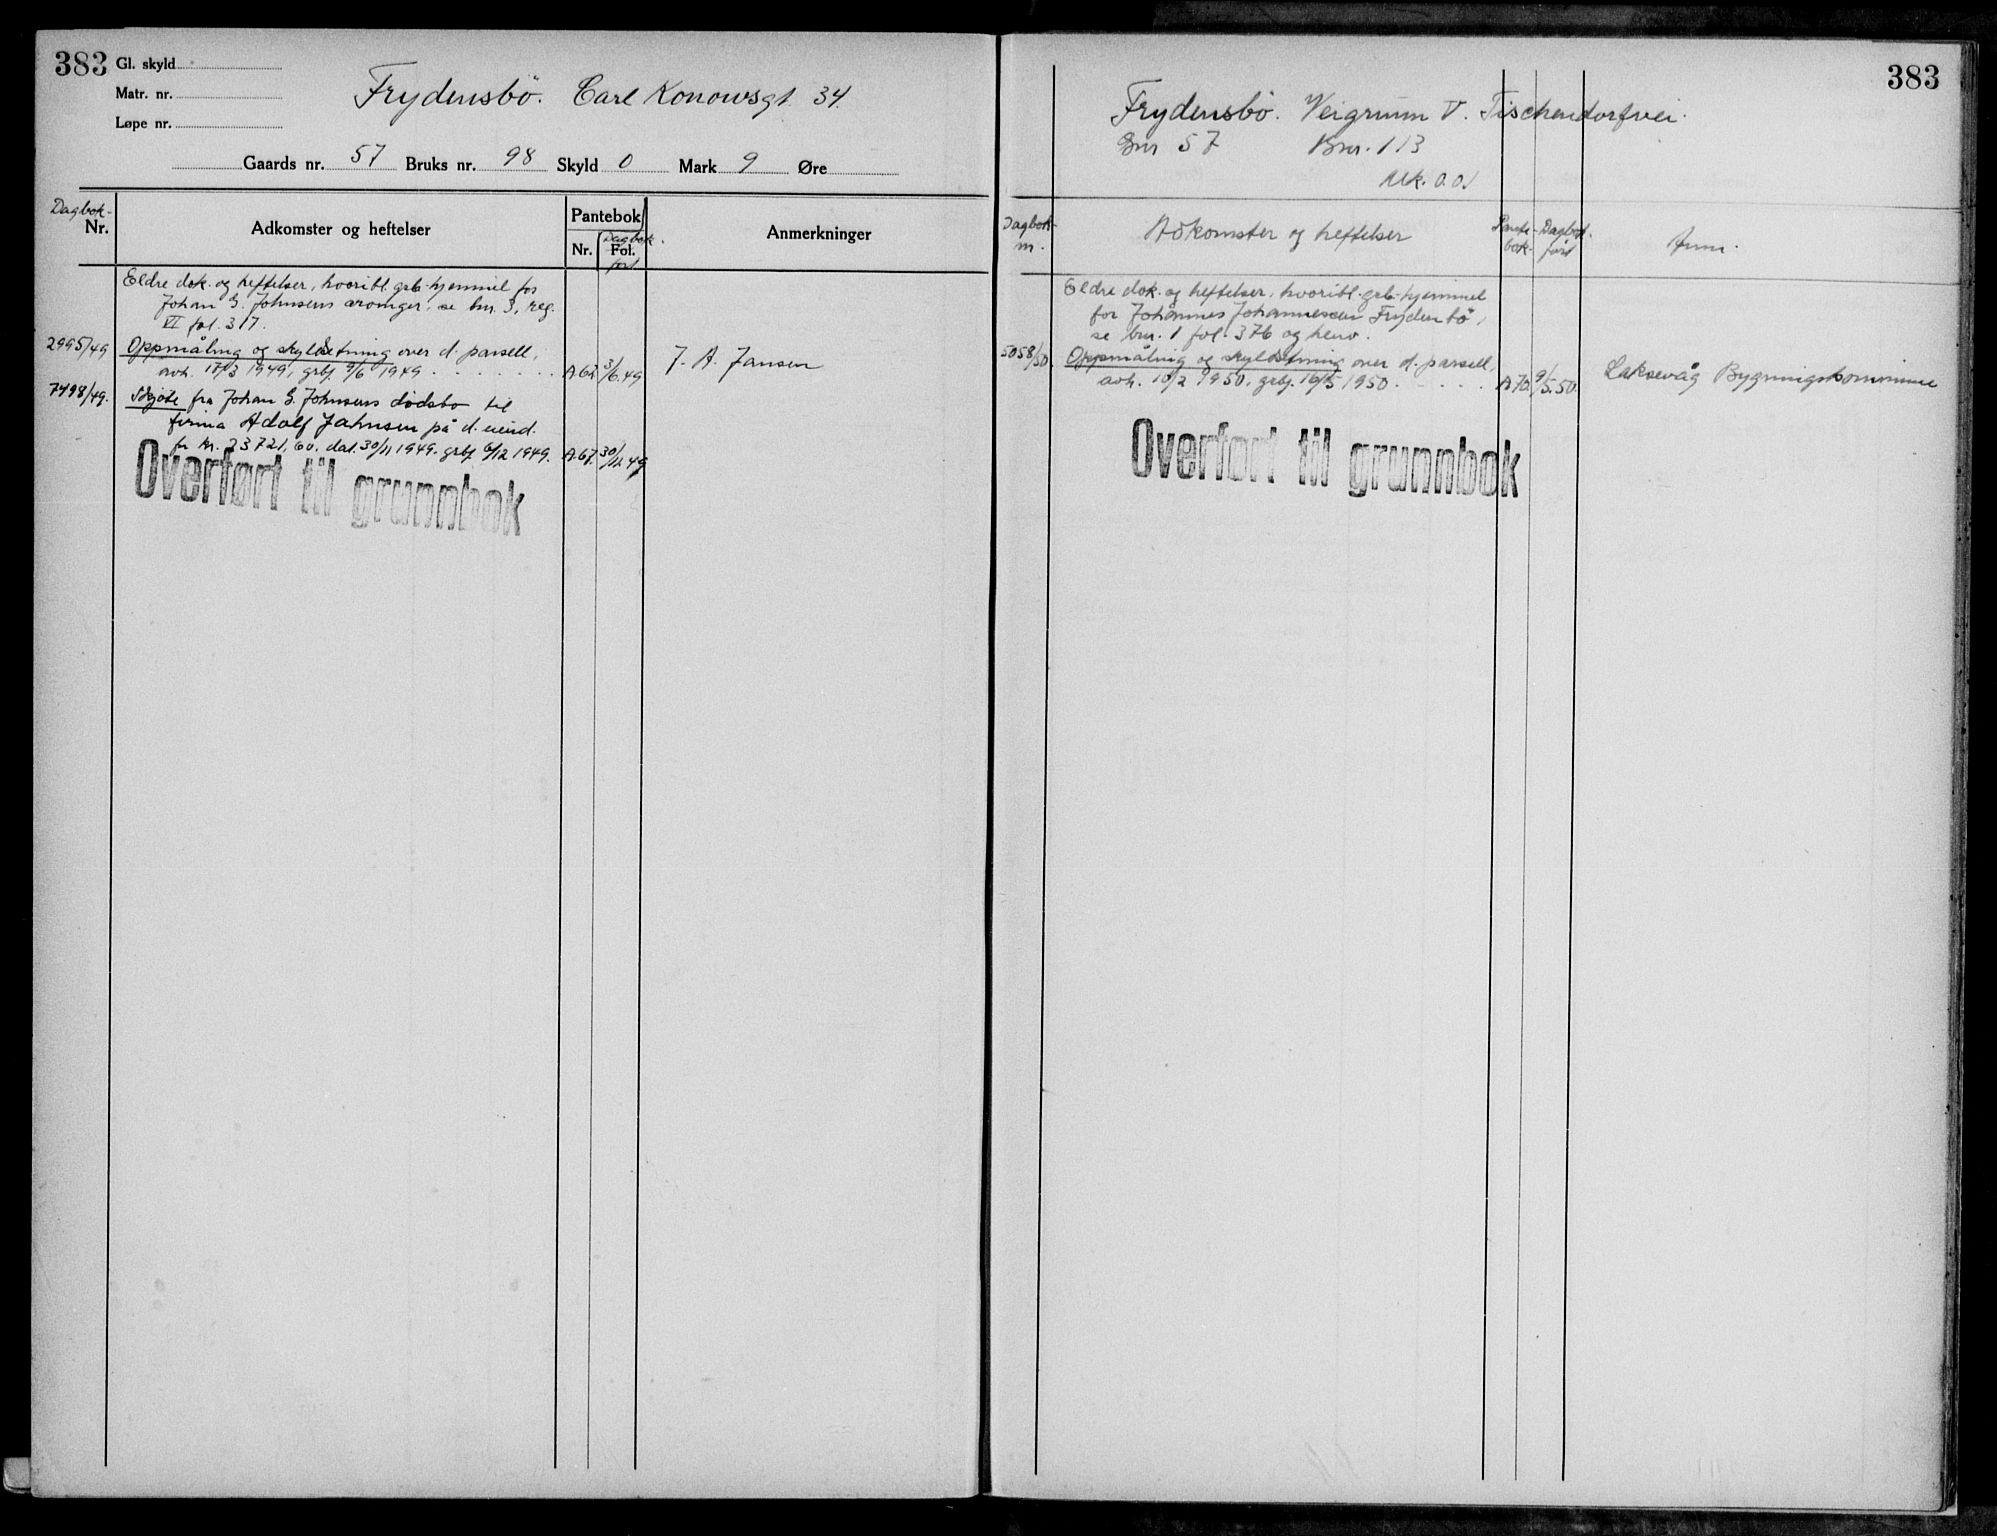 383
Gl. skyld
Matr. nr.
Løpe nr.
Frydensbö. Carl Konowsgt. 34.
Gaards nr. 57 Bruks nr. 98 Skyld 0 Mark 9 Øre
Dagbok-
Nr.
Adkomster og heftelser
Pantebok
Nr.
Dagbok.
Fol.
ført
Anmerkninger
Eldre dok. og heftelser, hvoribl. grb-hjemmel for
Johan G. Johnsens arvinger, se bnr. 3, reg.
VI fol. 317.
2995/49 Oppmåling og skyldsetning over d. parsell,
avh. 18/3 1949, grbf. 9/6 1949 . . . . . . . A 62. 3/6.49 J. A. Jansen
7498/49. Skjöte fra Johan G. Johnsens dødsbo til
firma Adolf Jahnsen på d. eiend.
for kr. 23721,60. dat 30/11 1949. grbf. 6/12 1949. A.67. 30/11.49
Overført til grunnbok
383
Frydensbö. Veigrunn V. Tischendorfvei.
Gnr 57 Bnr. 113
Mk. 0.01
Dagbok-
nr.
Adkomster og heftelser
Pante-
bok-
Dagbok.
ført
Anm.
Eldre dok. og heftelser, hvoribl. grb-hjemmel
for Johannes Johannessen Frydenbö,
se bnr. 1 fol. 376 og henv.
5058/50. Oppmåling og skyldsetning over d. parsell,
avh. 10/2 1950. grbf. 16/5 1950 . . . . . A 70. 9/5.50. Laksevåg Bygningskommune
Overført til grunnbok